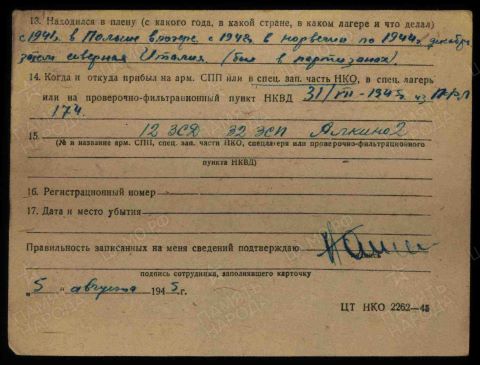 13. Находился в плену (с какого года, в какой стране, в каком лагере и что делал)
с 1941г. в Польше в лагере. с 1942г. в норвегии по 1944г. декабрь
затем северная Италия (был в партизанах).
14. Когда и откуда прибыл на арм. СПП или в спец. зап. часть НКО, в спец. лагерь
или на проверочно-фильтрационный пункт НКВД 31/VII - 1945г. из
174.
15. 12 ЗСД 32 ЗСП Алкино 2
(№ и название арм. СПП, спец. зап. части НКО, спецлагеря или проверочно-фильтрационного
пункта НКВД)
16. Регистрационный номер
17. Дата и место убытия
Правильность записанных на меня сведений подтверждаю
подпись сотрудника, заполнявшего карточку
„5" августа 1945 г.
ЦТ НКО 2262—45
ПАМЯТЬ НАРОДА